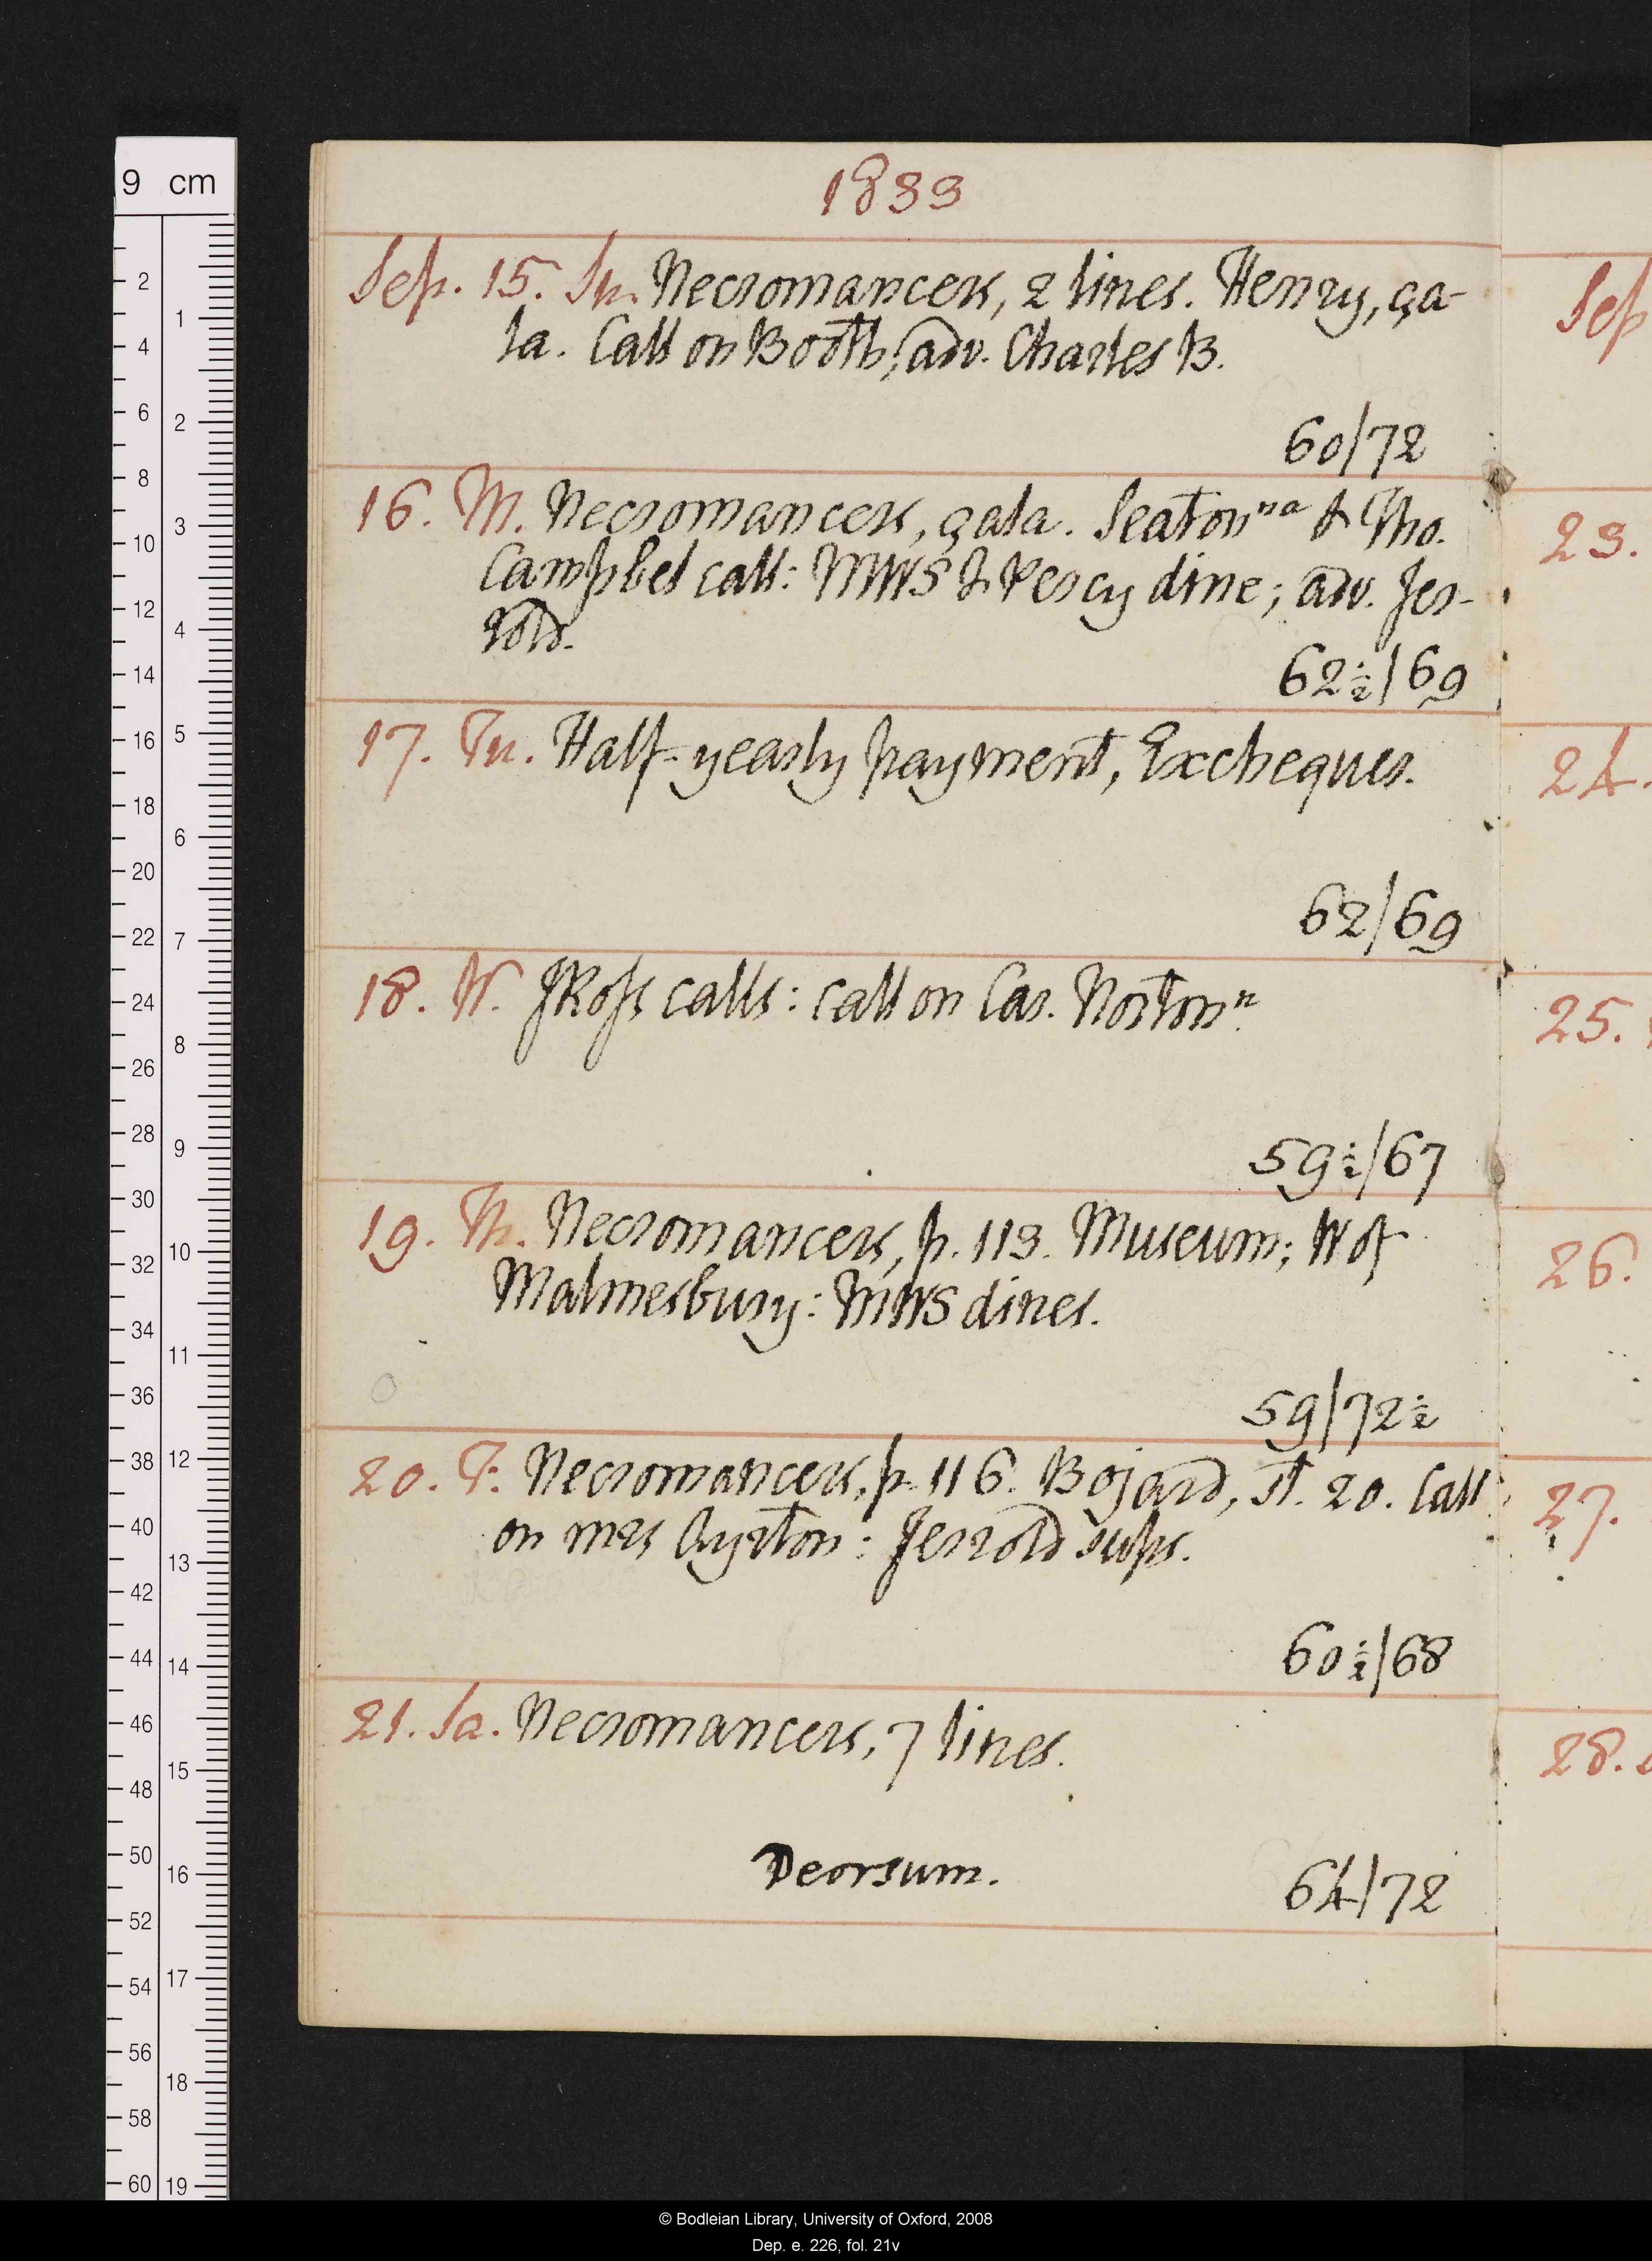 1833
Sep. 15. Su. Necromancers, 2 lines. Henry, ça-
la. Call on Booth; adv. Charles B.
60/72
16. M. Necromancers, çala. Seaton na & Tho.
Campbel call: MWS & Percy dine; adv. Jer-
rold.
62½/69
17. Tu. Half-yearly payment, Exchequer.
62/69
18. W. J Ross calls: call on Car. Norton n.
59½/67
19. Th. Necromancers, p. 113. Museum; W of
Malmesbury: MWS dines.
59/72½
20. F. Necromancers, p. 116. Bojard, st. 20. Call
on mrs Ayrton: Jerrold sups.
60½/68
21. Sa. Necromancers, 7 lines.
Deorsum.
64/72
Sep
23.
24.
25.
26.
27.
28.
9 cm
2
4
6
8
10
12
14
16
18
20
22
24
26
28
30
32
34
36
38
40
42
44
46
48
50
52
54
56
58
60
1
2
3
4
5
6
7
8
9
10
11
12
13
14
15
16
17
18
19
© Bodleian Library, University of Oxford, 2008
Dep. e. 226, fol. 21v